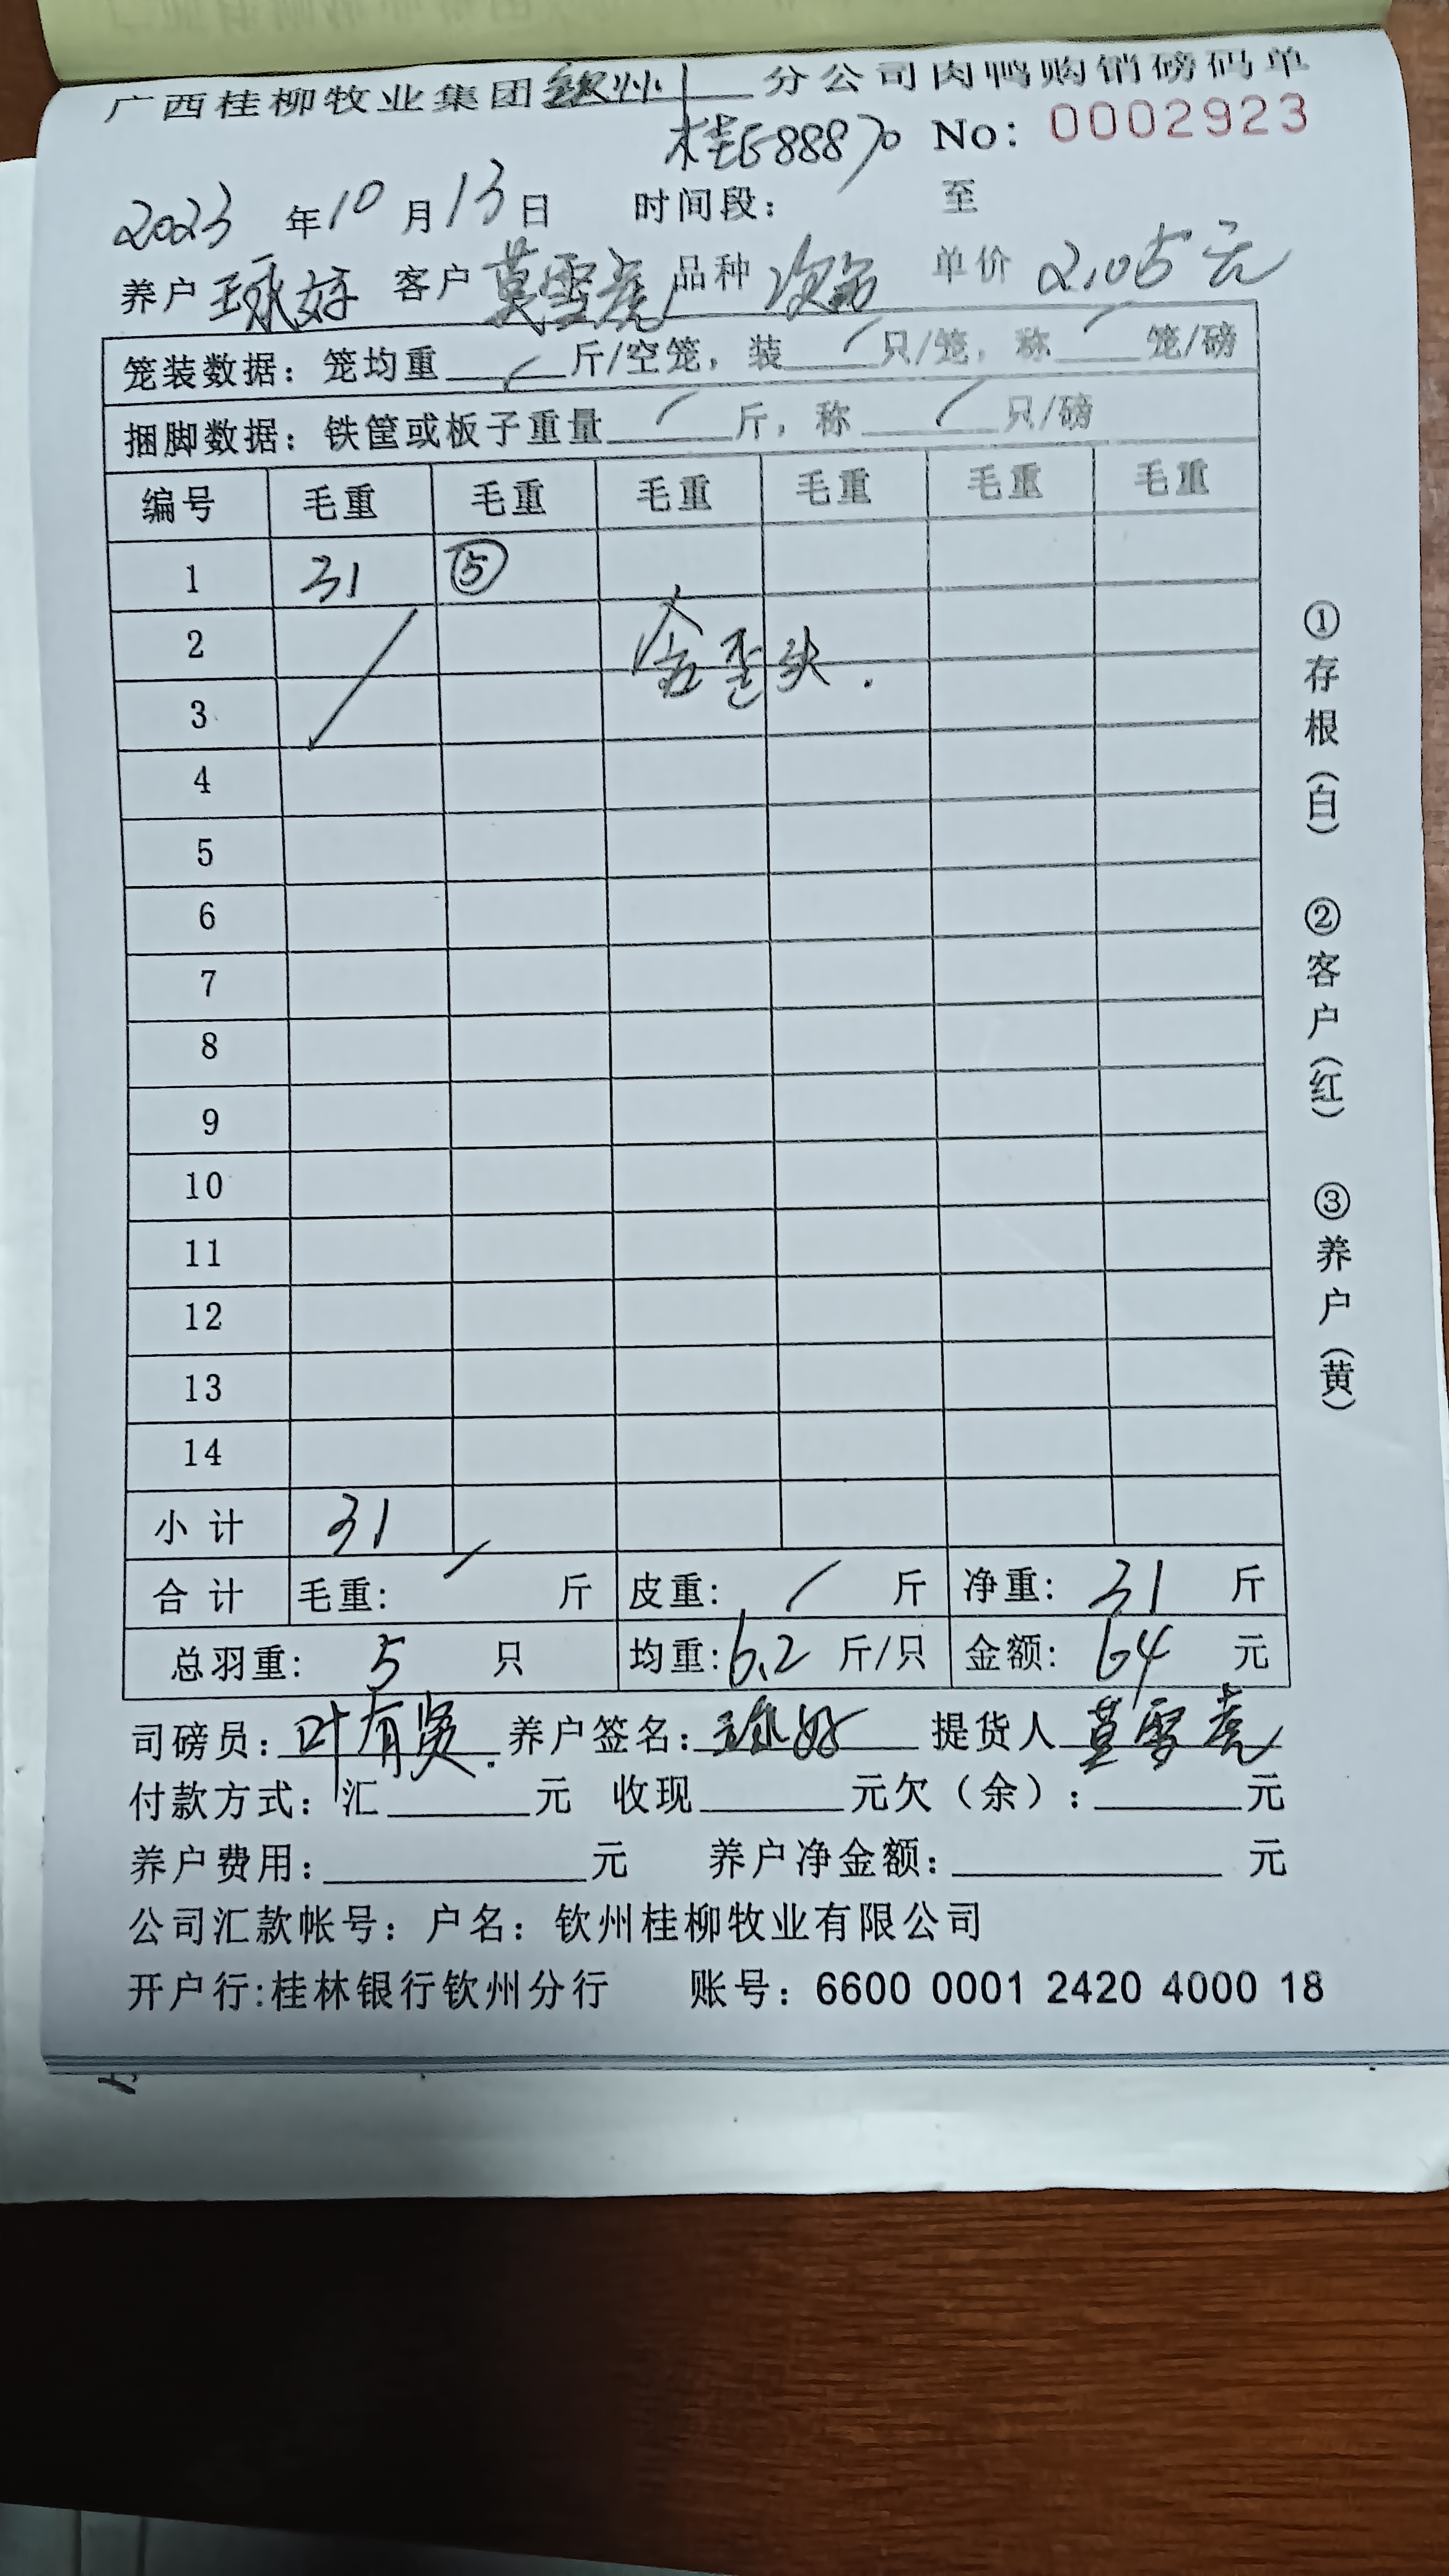 广西桂柳牧业集团钦州分公司肉鸭购销磅码单
桂E88870 No: 0002923
2023 年 10 月 13 日 时间段: 至
养户 客户 莫雪亮 品种 次品 单价 2.05元
笼装数据: 笼均重 / 斤/空笼, 装 / 只/笼, 称 / 笼/磅
捆脚数据: 铁筐或板子重量 / 斤, 称 / 只/磅
编号 毛重 毛重 毛重 毛重 毛重 毛重
1 31 ⑤
2 歪头.
3
4
5
6
7
8
9
10
11
12
13
14
小计 31
合计 毛重: / 斤 皮重: / 斤 净重: 31 斤
总羽重: 5 只 均重: 6.2 斤/只 金额: 64 元
司磅员: 叶有贤. 养户签名: 提货人 莫雪亮
付款方式: 汇 元 收现 元欠(余): 元
养户费用: 元 养户净金额: 元
公司汇款帐号: 户名: 钦州桂柳牧业有限公司
开户行:桂林银行钦州分行 账号: 6600 0001 2420 4000 18
①存根(白) ②客户(红) ③养户(黄)